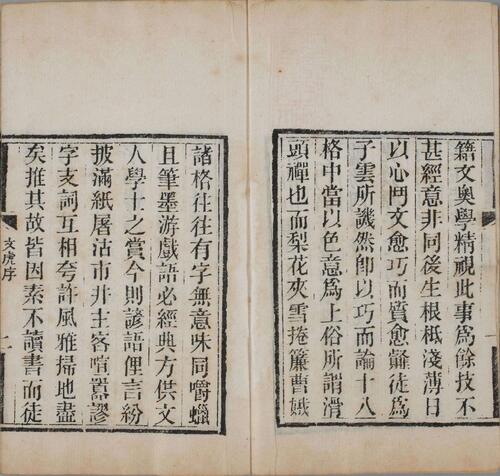 籍文奧學精視此事爲餘技不
甚經意非同後生根柢淺薄日
以心鬥文愈巧而質愈漓徒爲
子雲所譏然卽以巧而論十八
格中當以色意爲上俗所謂滑
頭禪也而梨花夾雪捲簾曹娥
諸格往往有字無意味同嚼蠟
且筆墨游戲語必經典方供文
人學士之賞今則諺語俚言紛
披滿紙屠沽市井主客喧囂謬
字支詞互相夸許風雅掃地盡
矣推其故皆因素不讀書而徒
文虎序